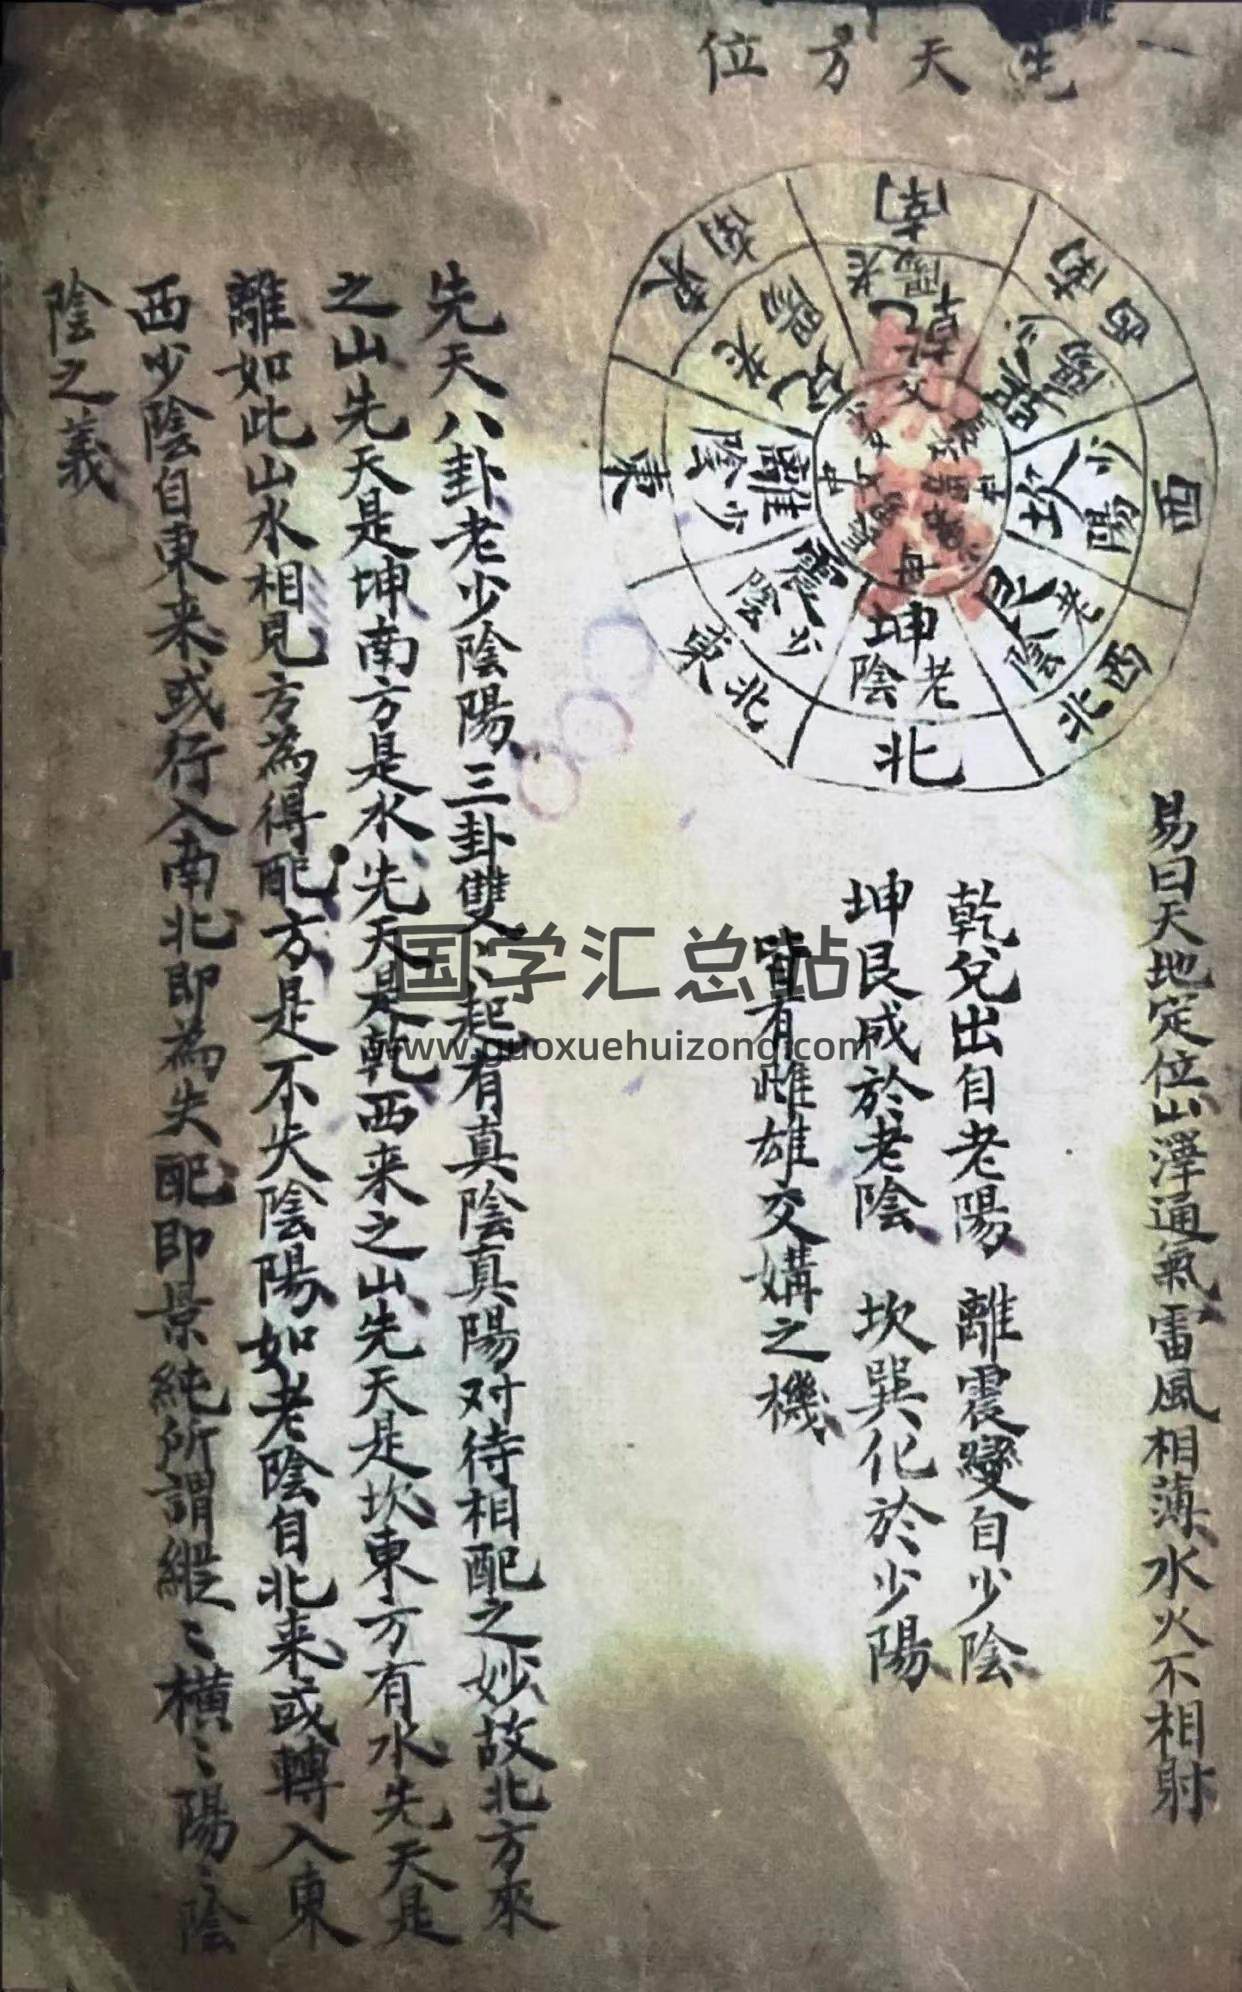 先天方位
南
老陽
乾
父
西南
少陽
巽
西
少陽
坎
西北
老陰
艮
北
老陰
坤
母
東北
少陰
震
東
少陰
離
中女
東南
老陽
兌
易曰天地定位山澤通氣雷風相薄水火不相射
乾兌出自老陽 離震變自少陰
坤艮成於老陰 坎巽化於少陽
皆有雌雄交媾之機
先天八卦老少陰陽三卦雙〻起有真陰真陽对待相配之妙故北方來
之山先天是坤南方是水先天是乾西来之山先天是坎東方有水先天是
離如此山水相見方為得配方是不失陰陽如老陰自北来或轉入東
西少陰自東来或行入南北即為失配即景純所謂縱〻橫〻陽〻陰
陰之義
国学汇总站
www.guoxuehuizong.com